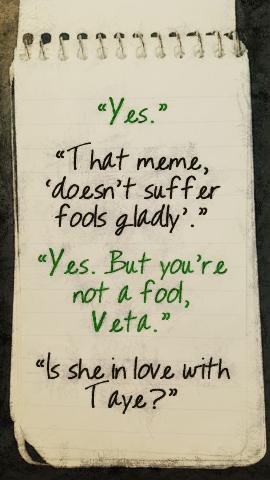 “Yes.”
“That meme,
‘doesn’t suffer
fools gladly’.”
“Yes. But you’re
not a fool,
Veta.”
“Is she in love with
Taye?”